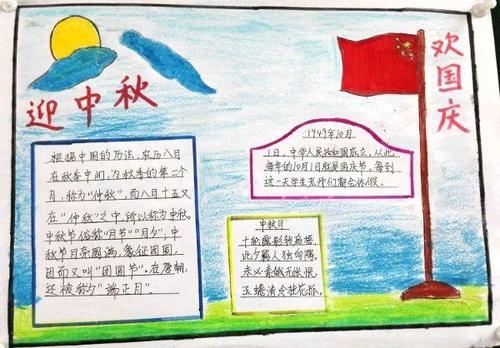 迎中秋
欢国庆
根据中国的历法，农历八月
在秋季中间，为秋季的第二个
月，称为"仲秋"，而八月十五又
在"仲秋"之中，所以称为中秋。
中秋节俗称"月节""月夕"，中
秋节月亮圆满，象征团圆，
因而又叫"团圆节"。在唐朝，
还被称为"端正月"。
1949年10月
1日，中华人民共和国成立，从此
每年的10月1日就是国庆节，每到
这一天学生老师们都会休假。
中秋月
十轮霜影转庭梧，
此夕羁人独向隅。
未必素娥无怅恨，
玉蟾清冷桂花孤。